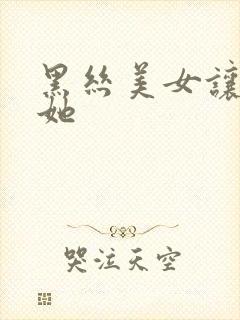 黑絲美女讓
她
哭泣天空